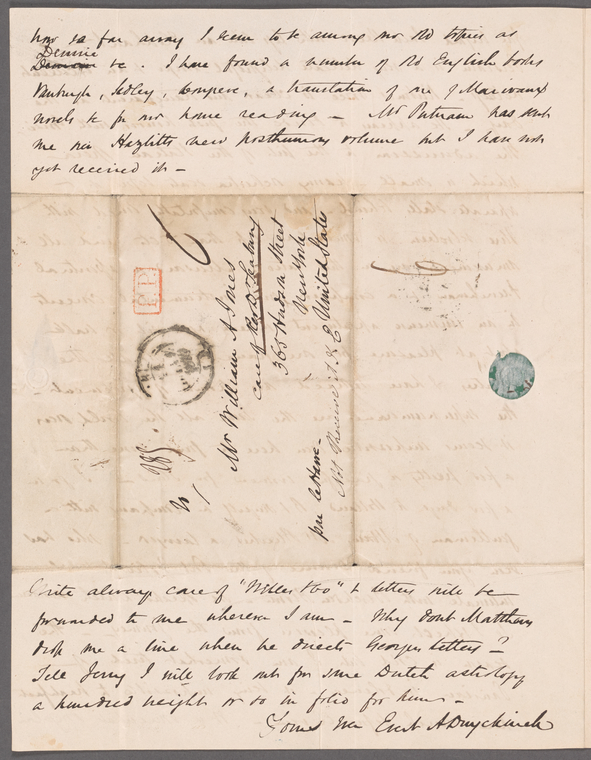 now so far away I seem to be among our old topics as
Dennie
&c. I have found a number of old English books
Vanburgh, Sedley, Congreve, a translation of one of Marivaux
novels &c for our home reading — Mr Putnam has sent
me Hazlitts new posthumous volume but I have not
yet received it —
6
P.P.
Mr William A Jones
care of
365 Hudson Street
New York
United States
pr Le Havre —
6
Write always care of "Wiley & Co" & letters will be
forwarded to me wherever I am — Why dont Matthews
drop me a line when he directs Georges letters? —
Tell Jerry I will look out for some Dutch astrology
a hundred weight or so in folio for him —
Yours ever Evert A Duyckinck